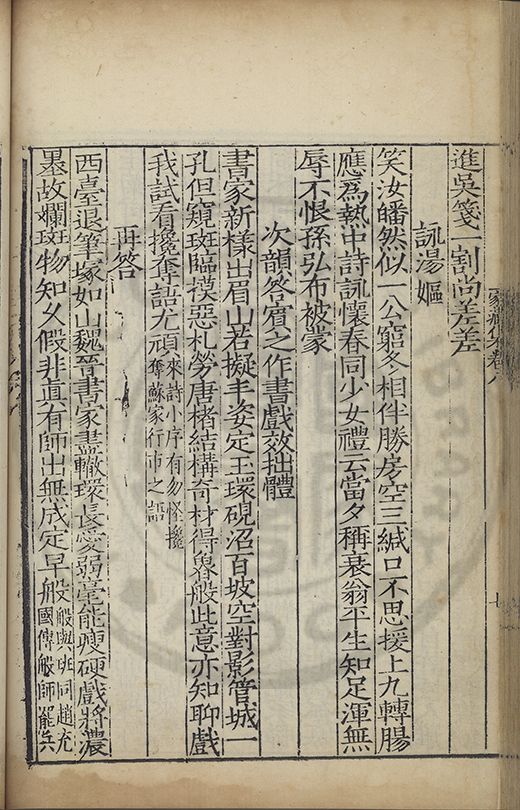 進吳箋一割尚差差
詠湯嫗
笑汝皤然似一公窮冬相伴勝房空三緘口不思援上九轉腸
應爲熱中詩詠懷春同少女禮云當夕稱衰翁平生知足渾無
辱不恨孫弘布被蒙
次韻答賓之作書戲效拙體
書家新樣出眉山若擬手姿定玉環硯沼百坡空對影管城一
孔但窺斑臨摸惡札勞唐楮結構奇材得魯般此意亦知聊戲
我試看攙奪詰尤頑來詩小序有勿怪攙奪蘇家行市之語
再答
西臺退筆塚如山魏晉書家盡轍環長愛弱毫能瘦硬戲將濃
墨故斕斑物知幺假非眞有師出無成定早般般與班同趙充國傳般師罷兵
家藏集卷八